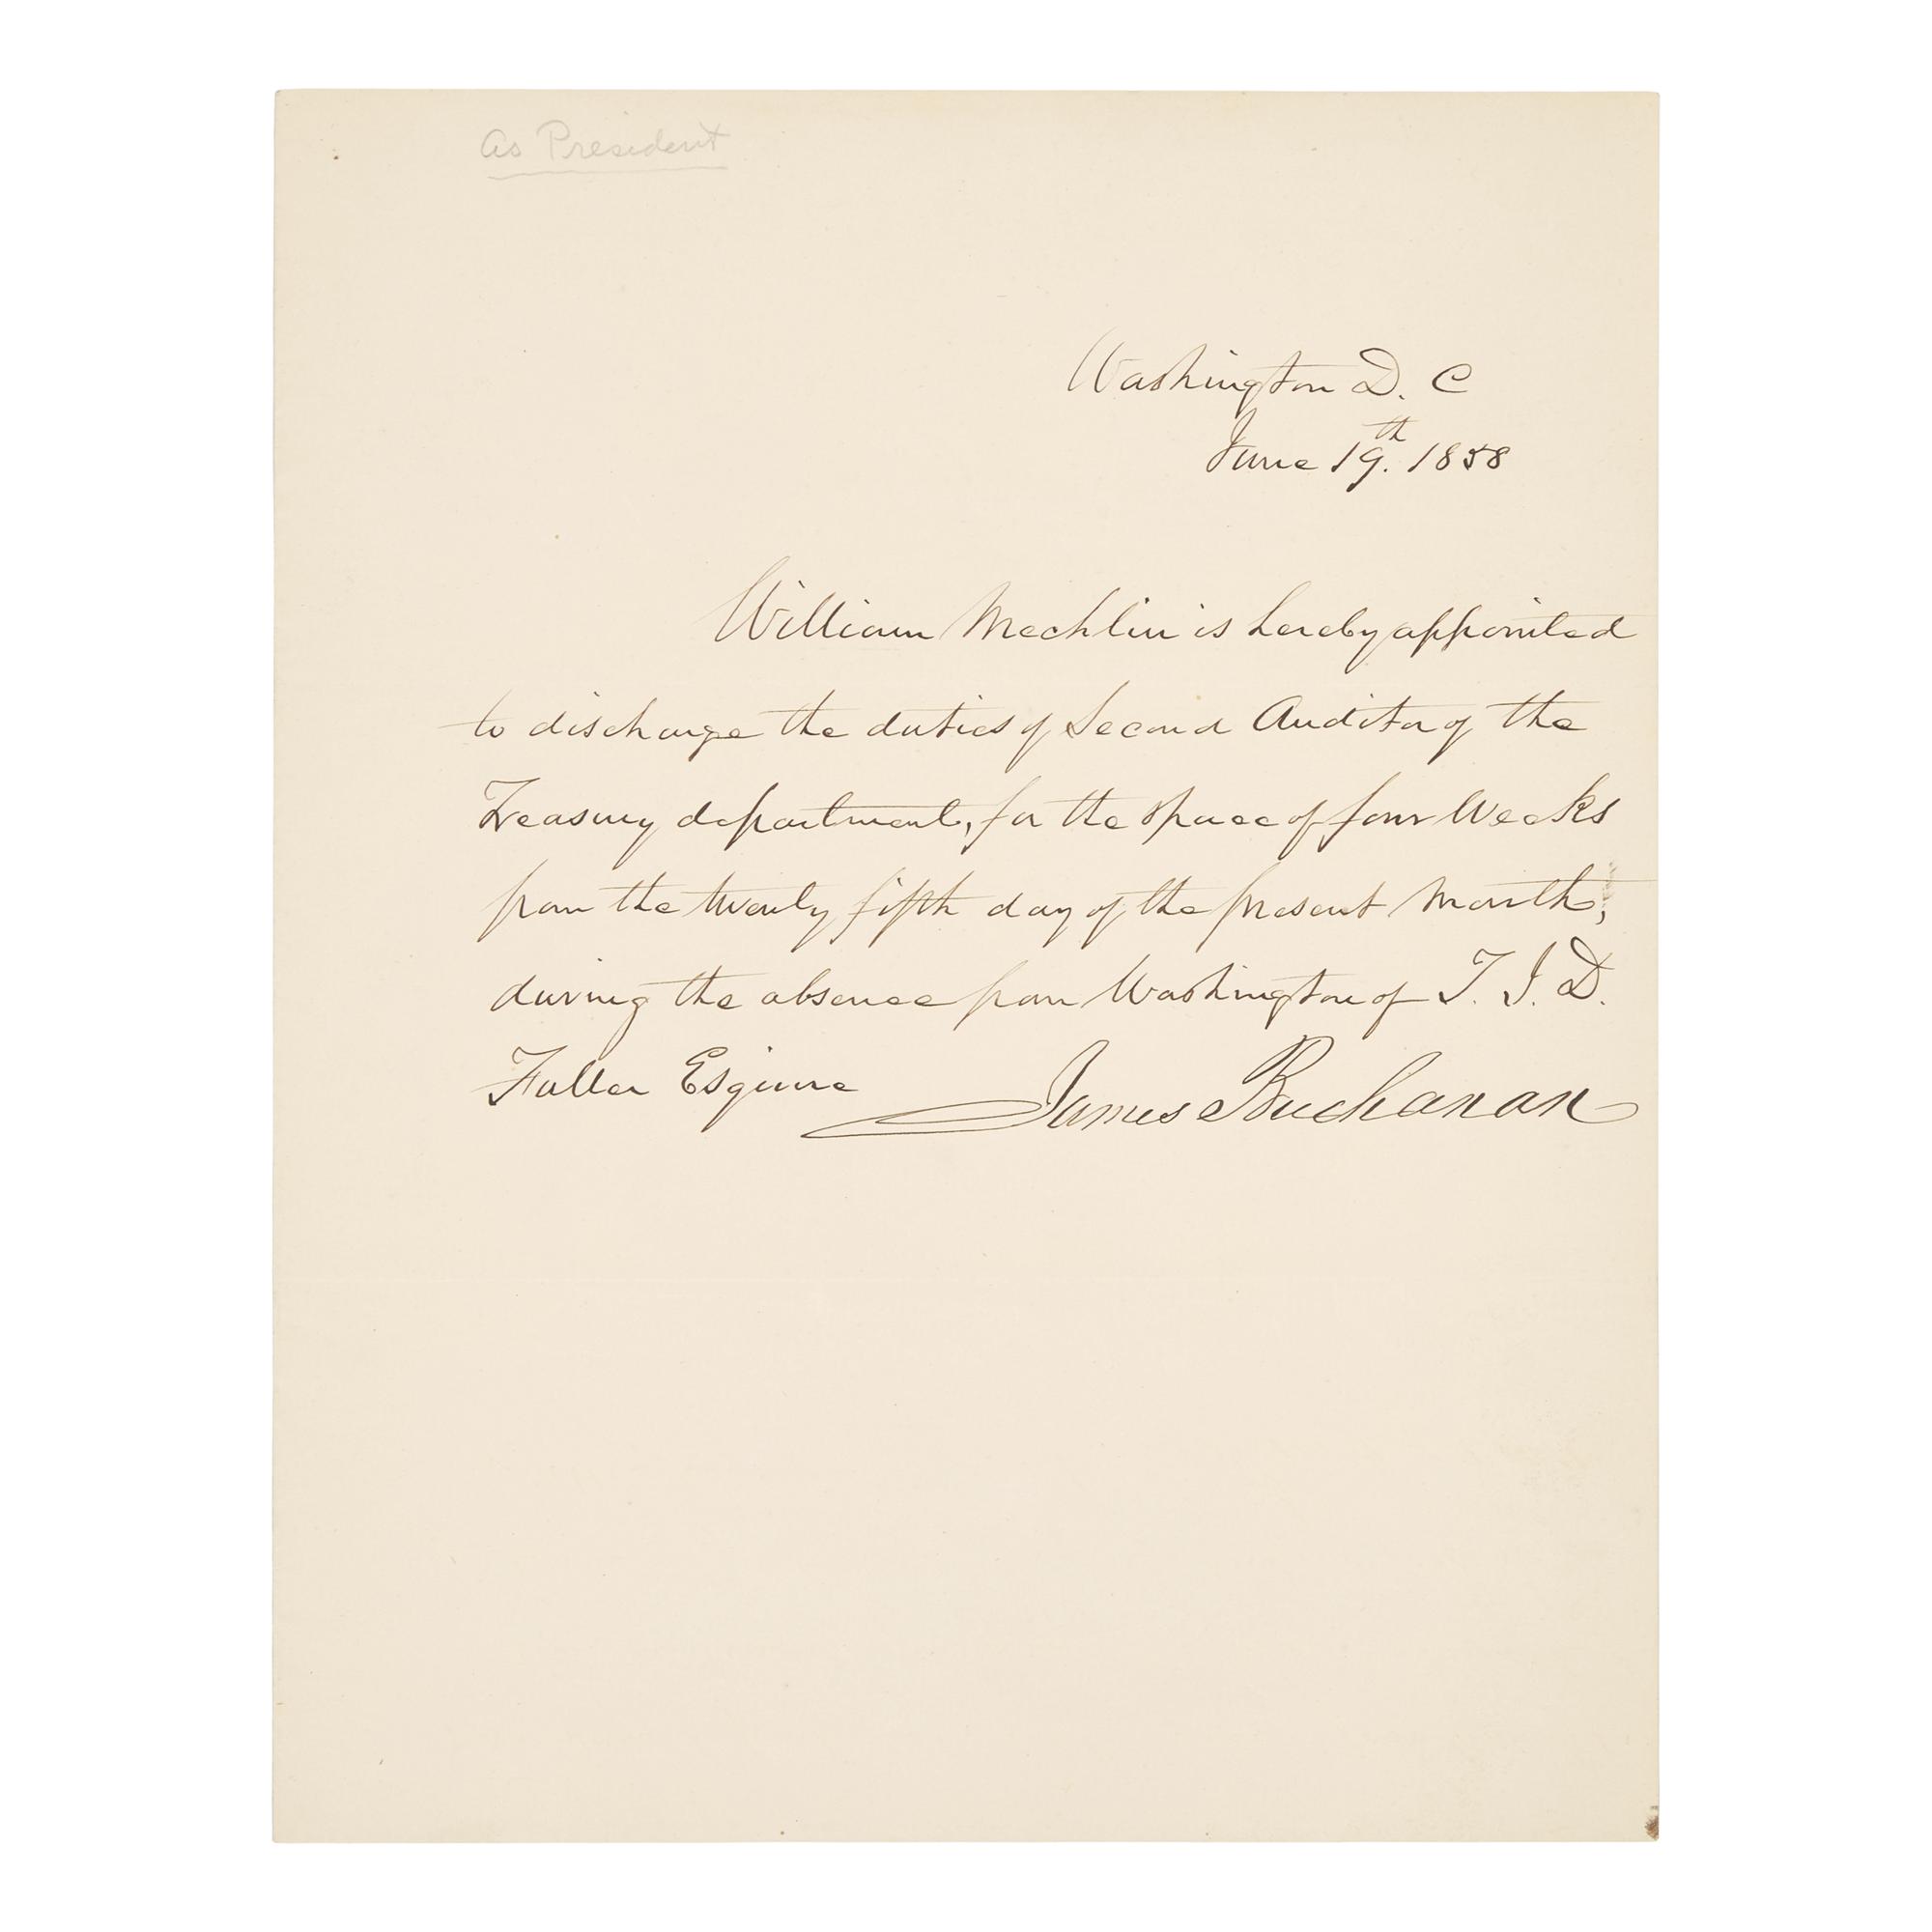 As President
Washington D. C
June 19th. 1858
William Mechlin is hereby appointed
to discharge the duties of Second Auditor of the
Treasury department, for the space of four Weeks
from the twenty fifth day of the present month,
during the absence from Washington of T. J. D.
Fuller Esquire
James Buchanan